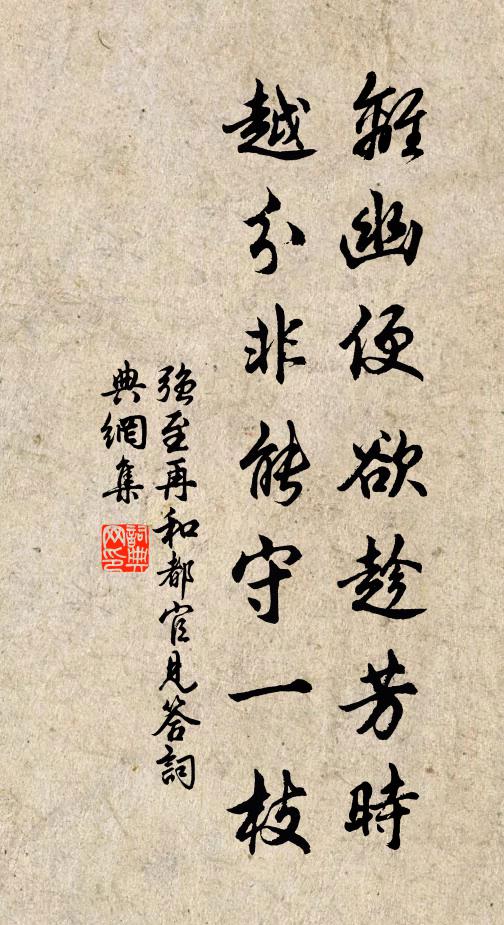 離幽便欲趁芳時
越分非能守一枝
強至再和都官見答詞
典網集
詞典網印